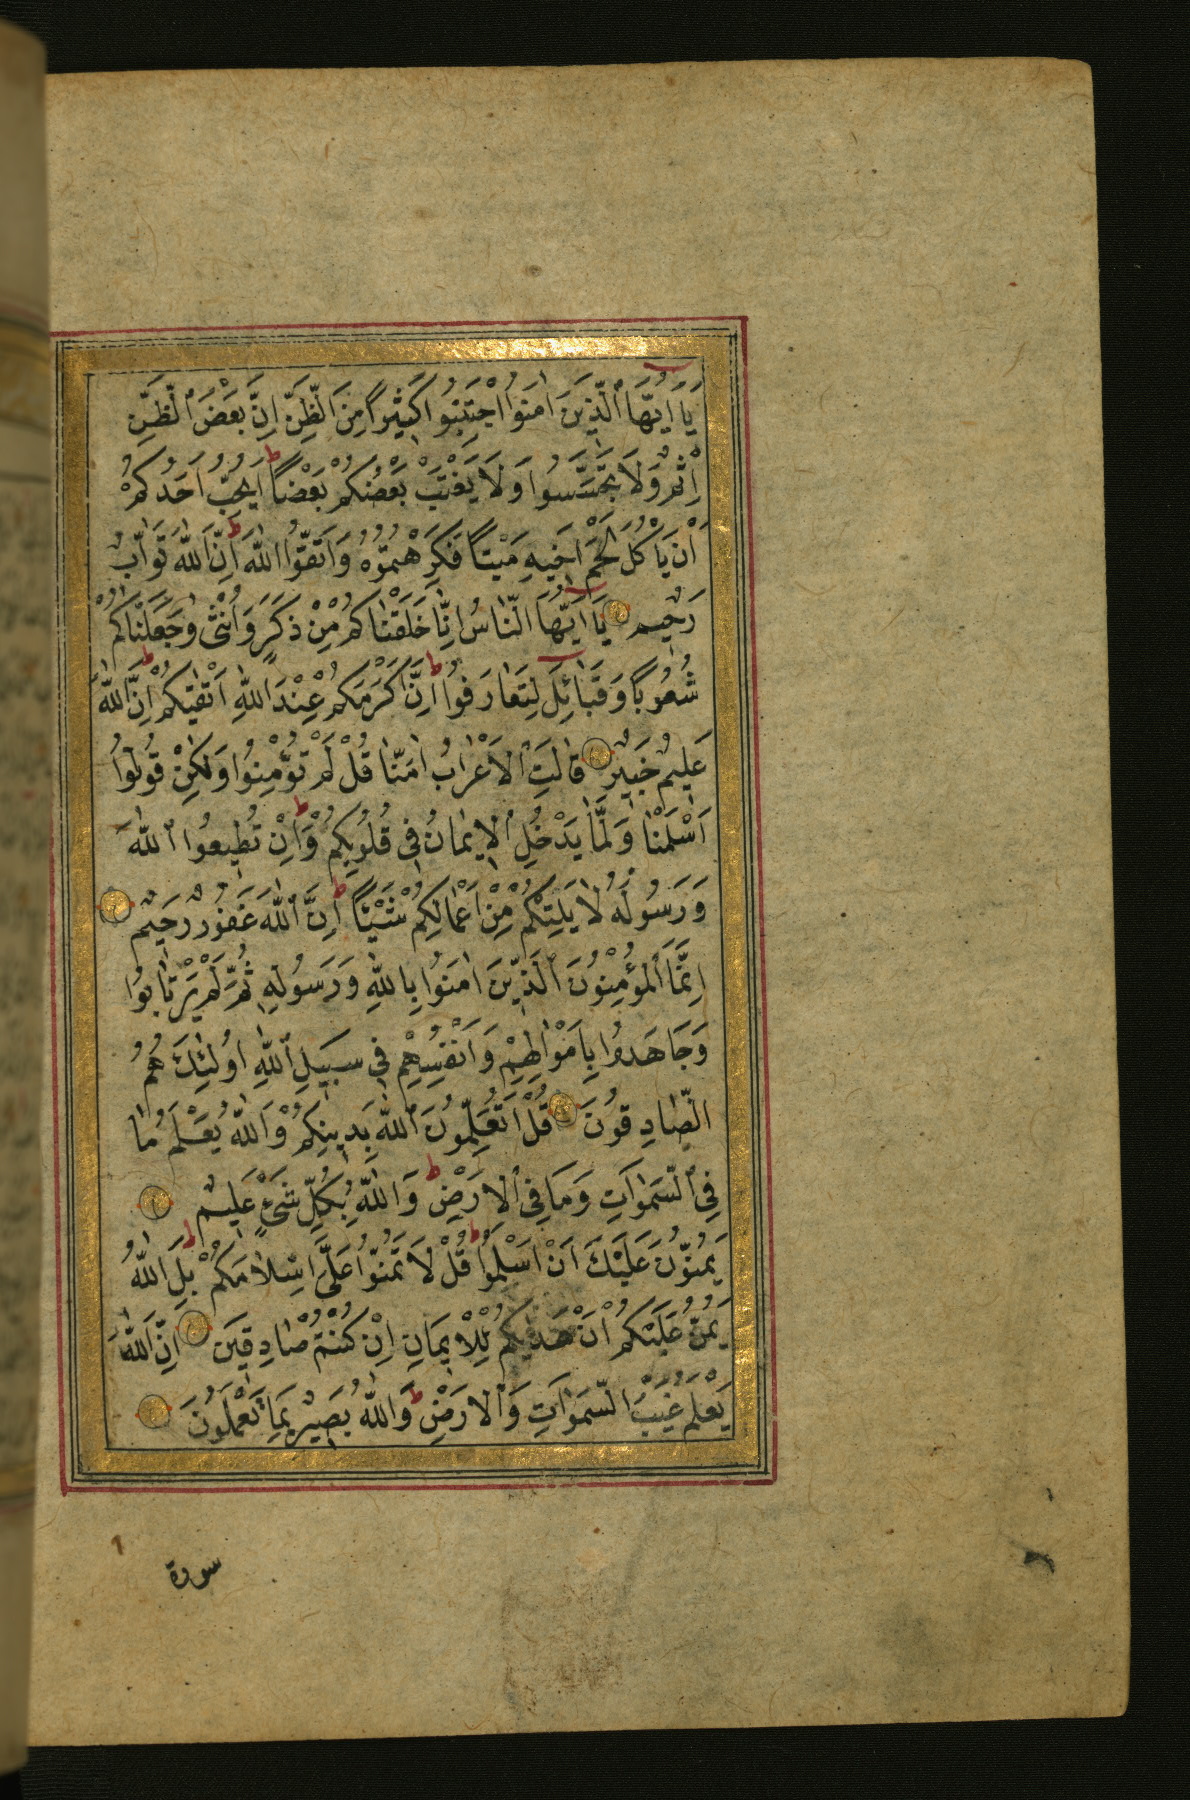 يَا اَيُّهَا ٱلَّذِينَ اٰمَنُوا اجْتَنِبُوا كَثِيرًا مِنَ الظَّنِّ اِنَّ بَعْضَ ٱلظَّنِّ
اِثْمٌ وَلَا تَجَسَّسُوا وَلَا يَغْتَبْ بَعْضُكُمْ بَعْضًا ط اَيُحِبُّ اَحَدُكُمْ
اَنْ يَأْكُلَ لَحْمَ اَخِيهِ مَيْتًا فَكَرِهْتُمُوهُ وَاتَّقُوا اللّٰهَ ط اِنَّ اللّٰهَ تَوَّابٌ
رَحِيمٌ يَا اَيُّهَا النَّاسُ اِنَّا خَلَقْنَاكُمْ مِنْ ذَكَرٍ وَاُنْثٰى وَجَعَلْنَاكُمْ
شُعُوبًا وَقَبَائِلَ لِتَعَارَفُوا ط اِنَّ اَكْرَمَكُمْ عِنْدَ اللّٰهِ اَتْقٰيكُمْ ط اِنَّ اللّٰهَ
عَلِيمٌ خَبِيرٌ قَالَتِ ٱلْاَعْرَابُ اٰمَنَّا قُلْ لَمْ تُؤْمِنُوا وَلٰكِنْ قُولُوا
اَسْلَمْنَا وَلَمَّا يَدْخُلِ ٱلْاِيمَانُ فِى قُلُوبِكُمْ ط وَاِنْ تُطِيعُوا ٱللّٰهَ
وَرَسُولَهُ لَا يَلِتْكُمْ مِنْ اَعْمَالِكُمْ شَيْئًا ط اِنَّ ٱللّٰهَ غَفُورٌ رَحِيمٌ
اِنَّمَا ٱلْمُؤْمِنُونَ ٱلَّذِينَ اٰمَنُوا بِاللّٰهِ وَرَسُولِهِ ثُمَّ لَمْ يَرْتَابُوا
وَجَاهَدُوا بِاَمْوَالِهِمْ وَاَنْفُسِهِمْ فِى سَبِيلِ ٱللّٰهِ اُولٰئِكَ هُمُ
الصَّادِقُونَ قُلْ اَتُعَلِّمُونَ ٱللّٰهَ بِدِينِكُمْ وَاللّٰهُ يَعْلَمُ مَا
فِى ٱلسَّمٰوَاتِ وَمَا فِى ٱلْاَرْضِ ط وَاللّٰهُ بِكُلِّ شَىْءٍ عَلِيمٌ
يَمُنُّونَ عَلَيْكَ اَنْ اَسْلَمُوا ط قُلْ لَا تَمُنُّوا عَلَىَّ اِسْلَامَكُمْ بَلِ اللّٰهُ
يَمُنُّ عَلَيْكُمْ اَنْ هَدٰيكُمْ لِلْاِيمَانِ اِنْ كُنْتُمْ صَادِقِينَ اِنَّ اللّٰهَ
يَعْلَمُ غَيْبَ السَّمٰوَاتِ وَٱلْاَرْضِ ط وَاللّٰهُ بَصِيرٌ بِمَا تَعْمَلُونَ
سورة